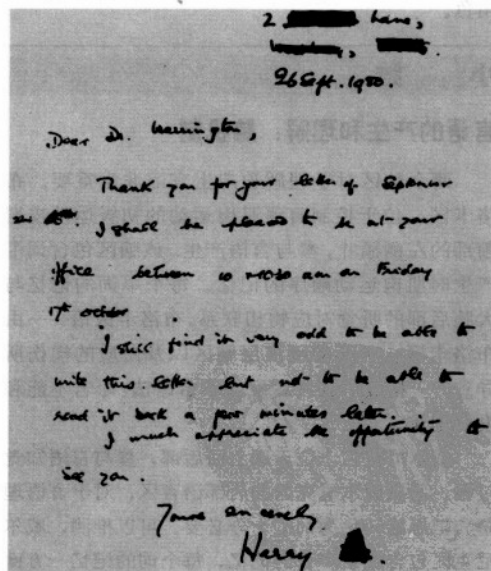 2 Lane,
26 Sept. 1980.
Dear Dr. Warrington,
Thank you for your letter of September
16th. I shall be pleased to be at your
office between 10 - 10.30 am on Friday
17th october
I still find it very odd to be able to
write this letter but not to be able to
read it back a few minutes later.
I much appreciate the opportunity to
see you.
Yours sincerely
Harry